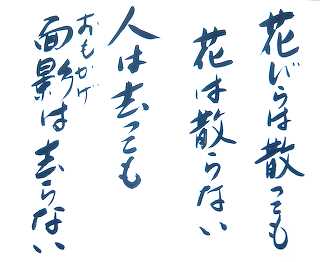 花びらは散っても
花は散らない
人は去っても
面影は去らない
おもかげ